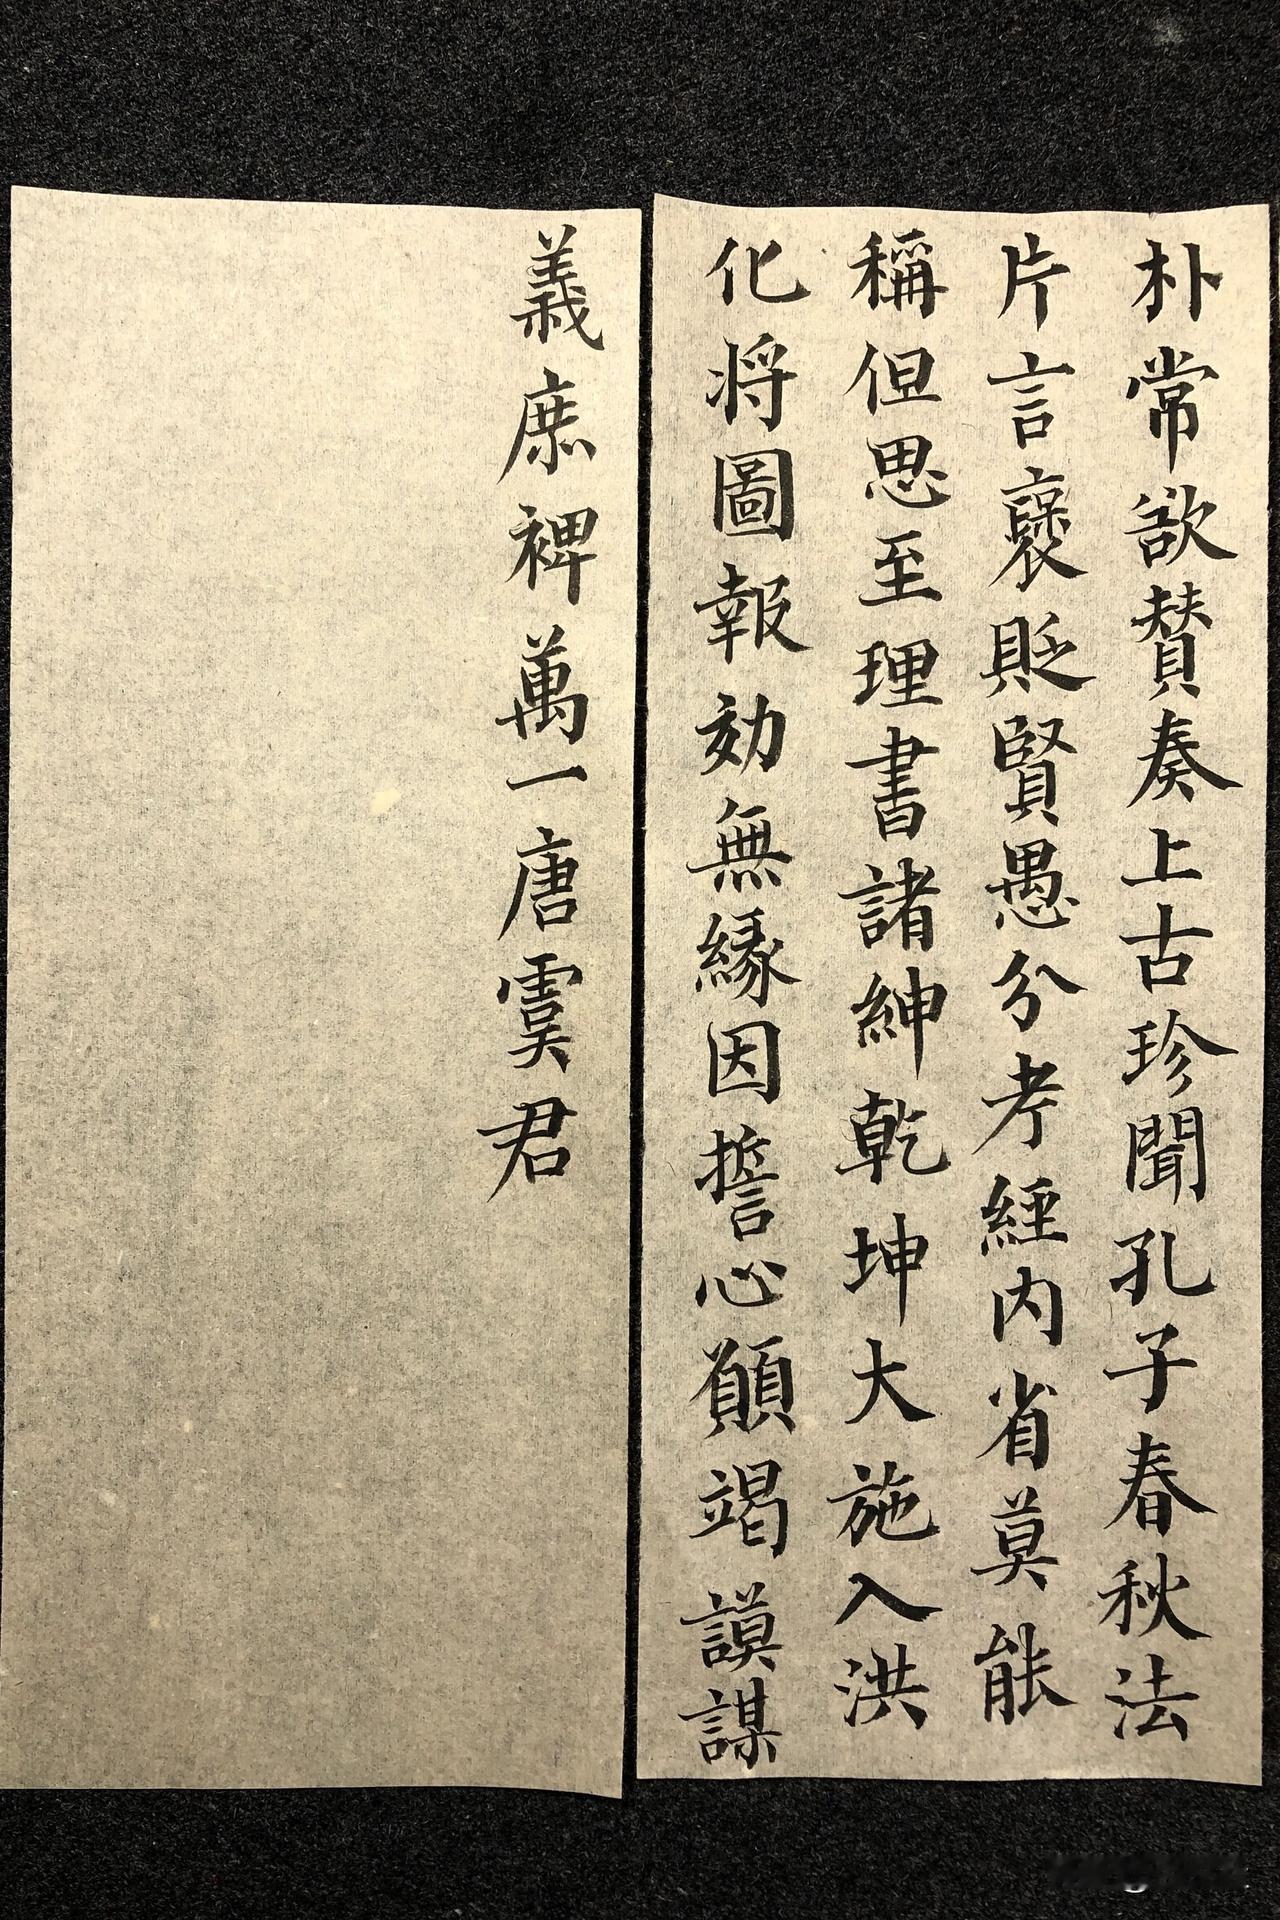 朴常欲賛奏上古珍聞孔子春秋法
片言褒貶賢愚分考經内省莫能
稱但思至理書諸紳乾坤大施入洪
化将圖報効無緣因誓心願竭謨謀
義庶裨萬一唐虞君